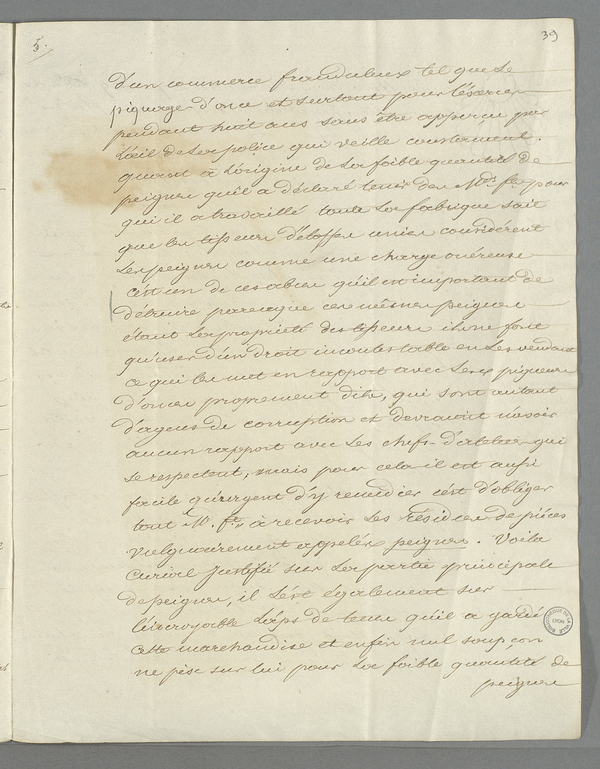 5.
39
d'un commerce frauduleux tel que le
piquage d'once et surtout pour l'exercer
pendant huit ans sans être apperçu par
l'œil de la police qui veille constament.
quant à l'origine de la foible quantité de
peignes qu'il a déclaré tenir des Mds. fts. pour
qui il a travaillé toute la fabrique sait
que les tisseurs d'étoffes unies considèrent
les peignes comme une charge onéreuse
c'est un de ces abus qu'il est important de
détruire parceque ces mêmes peignes
étant la propriété des tisseurs ils ne font
qu'user d'un droit incontestable en les vendant
ce qui les met en rapport avec les piqueurs
d'onces proprement dits, qui sont autant
d'agens de corruption et devroient n'avoir
aucun rapport avec les chefs d'atelier qui
se respectent, mais pour cela il est aussi
facile qu'urgent d'y remédier c'est d'obliger
tout M. ft. à recevoir les résidus de pièces
vulgairement appelés peignes. Voila
Curial justifié sur la partie principale
de peignes, il l'est également sur
l'incroyable laps de tems qu'il a gardé
cette marchandise et enfin nul soupçon
ne pèse sur lui pour la foible quantité de
peignes
BIBLIOTHEQUE DE LA VILLE
LYON